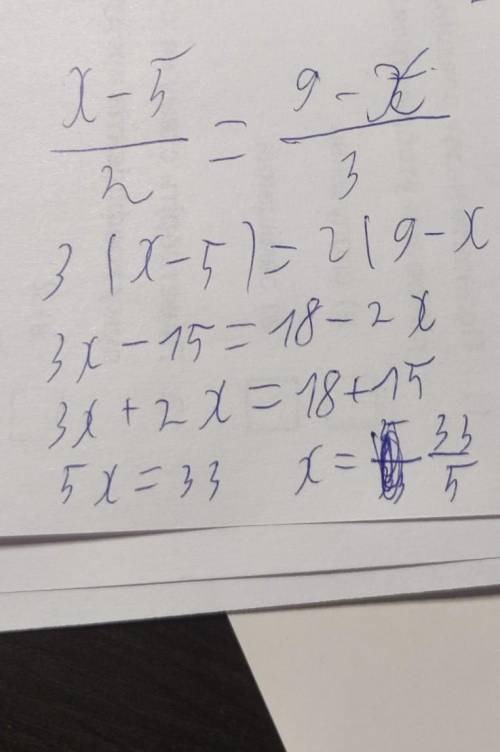 x - 5 / 2 = 9 - x / 3
3 (x - 5) = 2 (9 - x
3x - 15 = 18 - 2x
3x + 2x = 18 + 15
5x = 33 x = 33 / 5